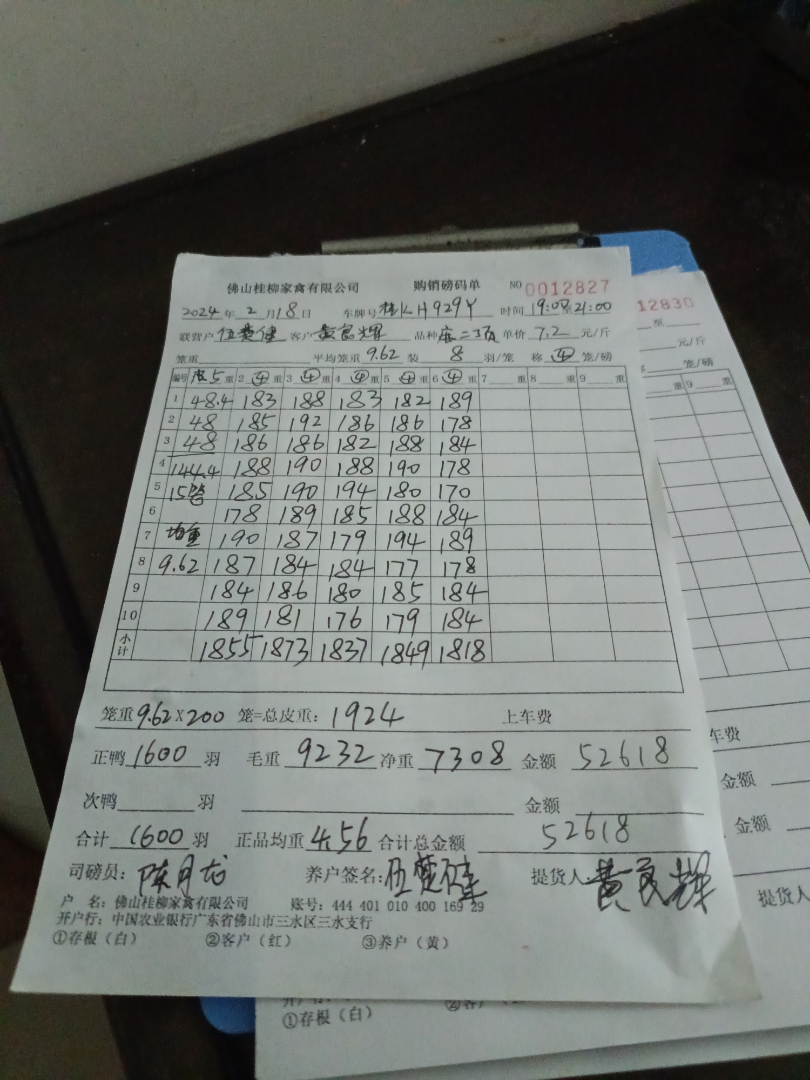 佛山桂柳家禽有限公司 购销磅码单 NO 0012827
2024年2月18日 车牌号 桂KH929Y 时间 19:07至21:00
联营户 伍楚健 客户 黄良辉 品种 二项 单价 7.2 元/斤
笼重 平均笼重 9.62 装 8 羽/笼 称 ④ 笼/磅
编号 皮5重 2 ④重 3 ④重 4 ④重 5 ④重 6 ④重 7 重 8 重 9 重
1 48.4 183 188 183 182 189
2 48 185 192 186 186 178
3 48 186 186 182 188 184
4 144.4 188 190 188 190 178
5 15笼 185 190 194 180 170
6 178 189 185 188 184
7 均重 190 187 179 194 189
8 9.62 187 184 184 177 178
9 184 186 180 185 184
10 189 181 176 179 184
小计 1855 1873 1837 1849 1818
笼重 9.62×200 笼=总皮重: 1924 上车费
正鸭 1600 羽 毛重 9232 净重 7308 金额 52618
次鸭 羽 金额
合计 1600 羽 正品均重 4.56 合计总金额 52618
司磅员: 陈月龙 养户签名: 伍楚健 提货人: 黄良辉
户 名: 佛山桂柳家禽有限公司 账号: 444 401 010 400 169 29
开户行: 中国农业银行广东省佛山市三水区三水支行
①存根（白） ②客户（红） ③养户（黄）
12830
至
元/斤
笼/磅
重 9 重
车费
金额
金额
提货人
①存根（白）